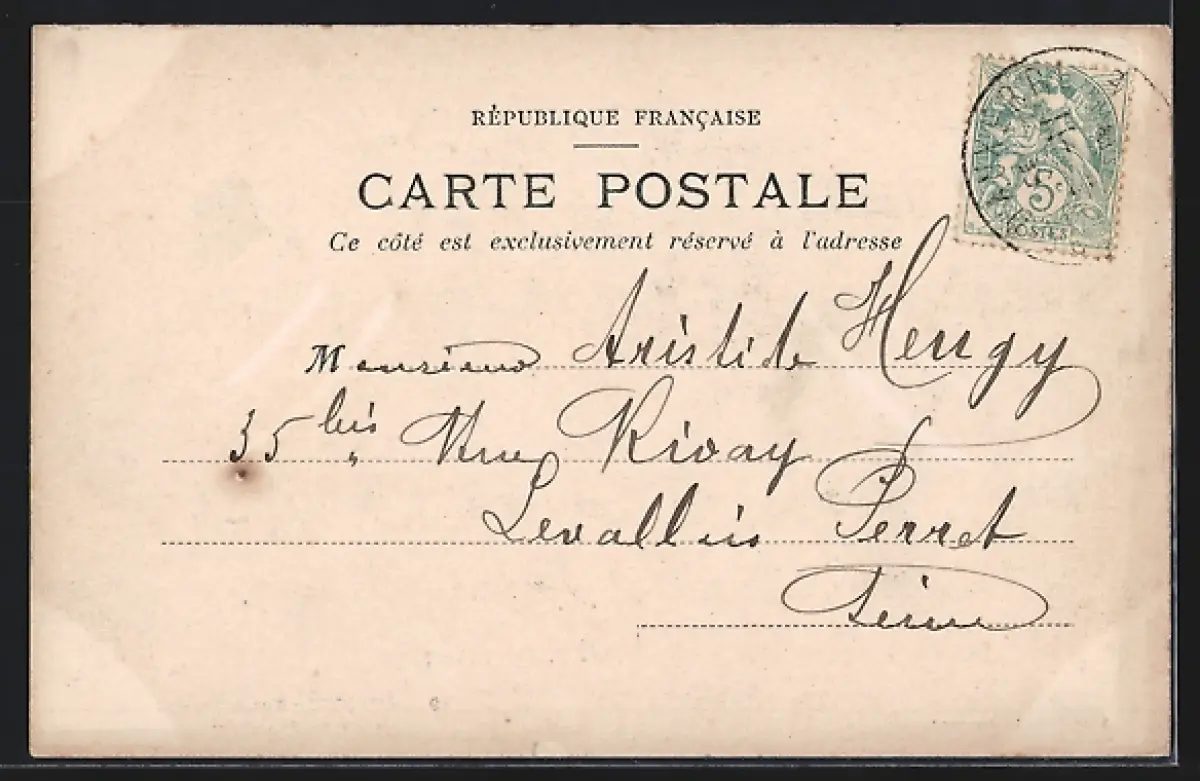 RÉPUBLIQUE FRANÇAISE
CARTE POSTALE
Ce côté est exclusivement réservé à l'adresse
5c
POSTES
Monsieur Aristide Hengy
35 bis Rue Rivay
Levallois Perret
Seine